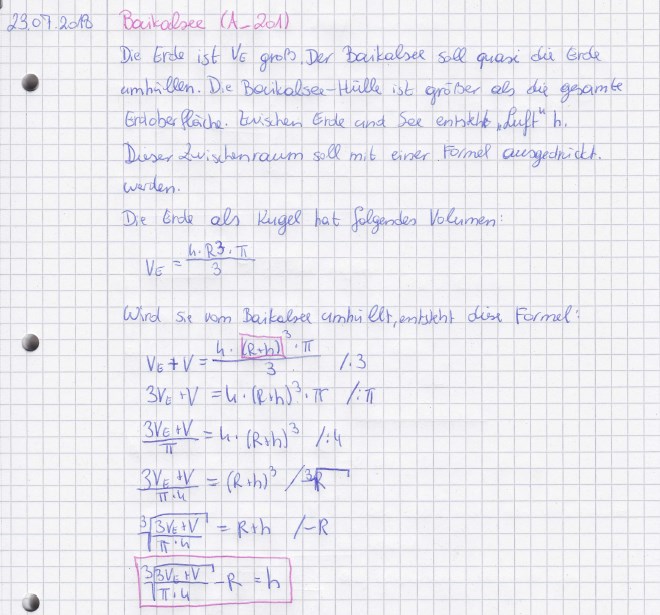 23.07.2018 Baikalsee (A_201)
Die Erde ist VE groß. Der Baikalsee soll quasi die Erde
umhüllen. Die Baikalsee-Hülle ist größer als die gesamte
Erdoberfläche. Zwischen Erde und See entsteht „Luft“ h.
Dieser Zwischenraum soll mit einer Formel ausgedrückt.
werden.
Die Erde als Kugel hat folgendes Volumen:
VE = 4·R3·π / 3
Wird sie vom Baikalsee umhüllt, entsteht diese Formel:
VE + V = 4·(R+h)³·π / 3 /·3
3VE + V = 4·(R+h)³·π /:π
3VE + V / π = 4·(R+h)³ /:4
3VE + V / π·4 = (R+h)³ /³√R
³√(3VE + V / π·4) = R+h /-R
³√(3VE + V / π·4) - R = h